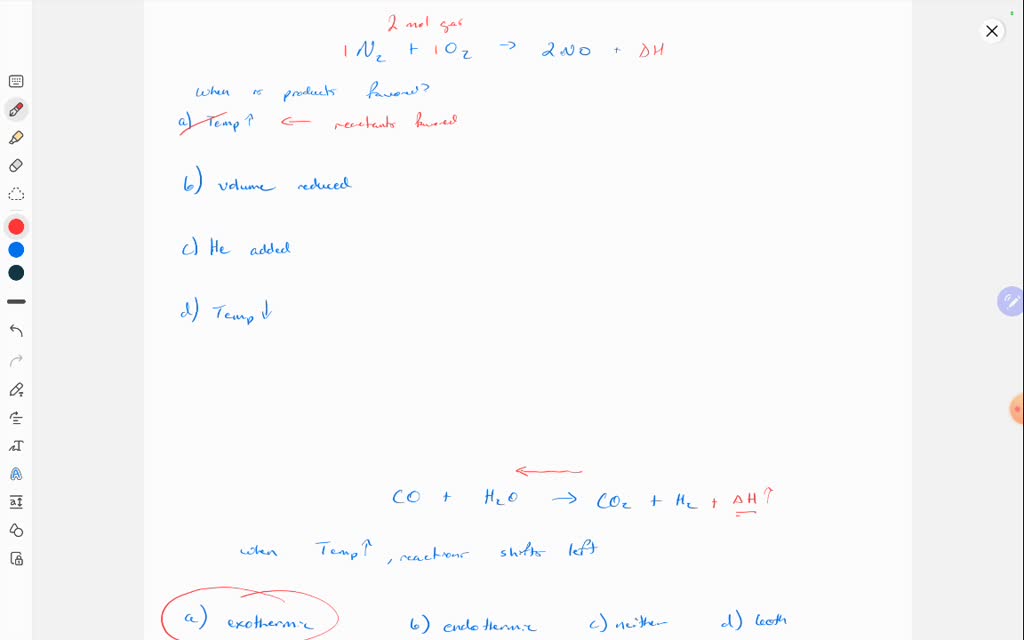 2 mol gas
1 N₂ + 1 O₂ → 2NO + ΔH
when is products favored?
a) Temp ↑ ← reactants favored
b) volume reduced
c) He added
d) Temp ↓
←
CO + H₂O → CO₂ + H₂ + ΔH ↑
when Temp ↑, reactions shifts left
a) exothermic b) endothermic c) neither d) both